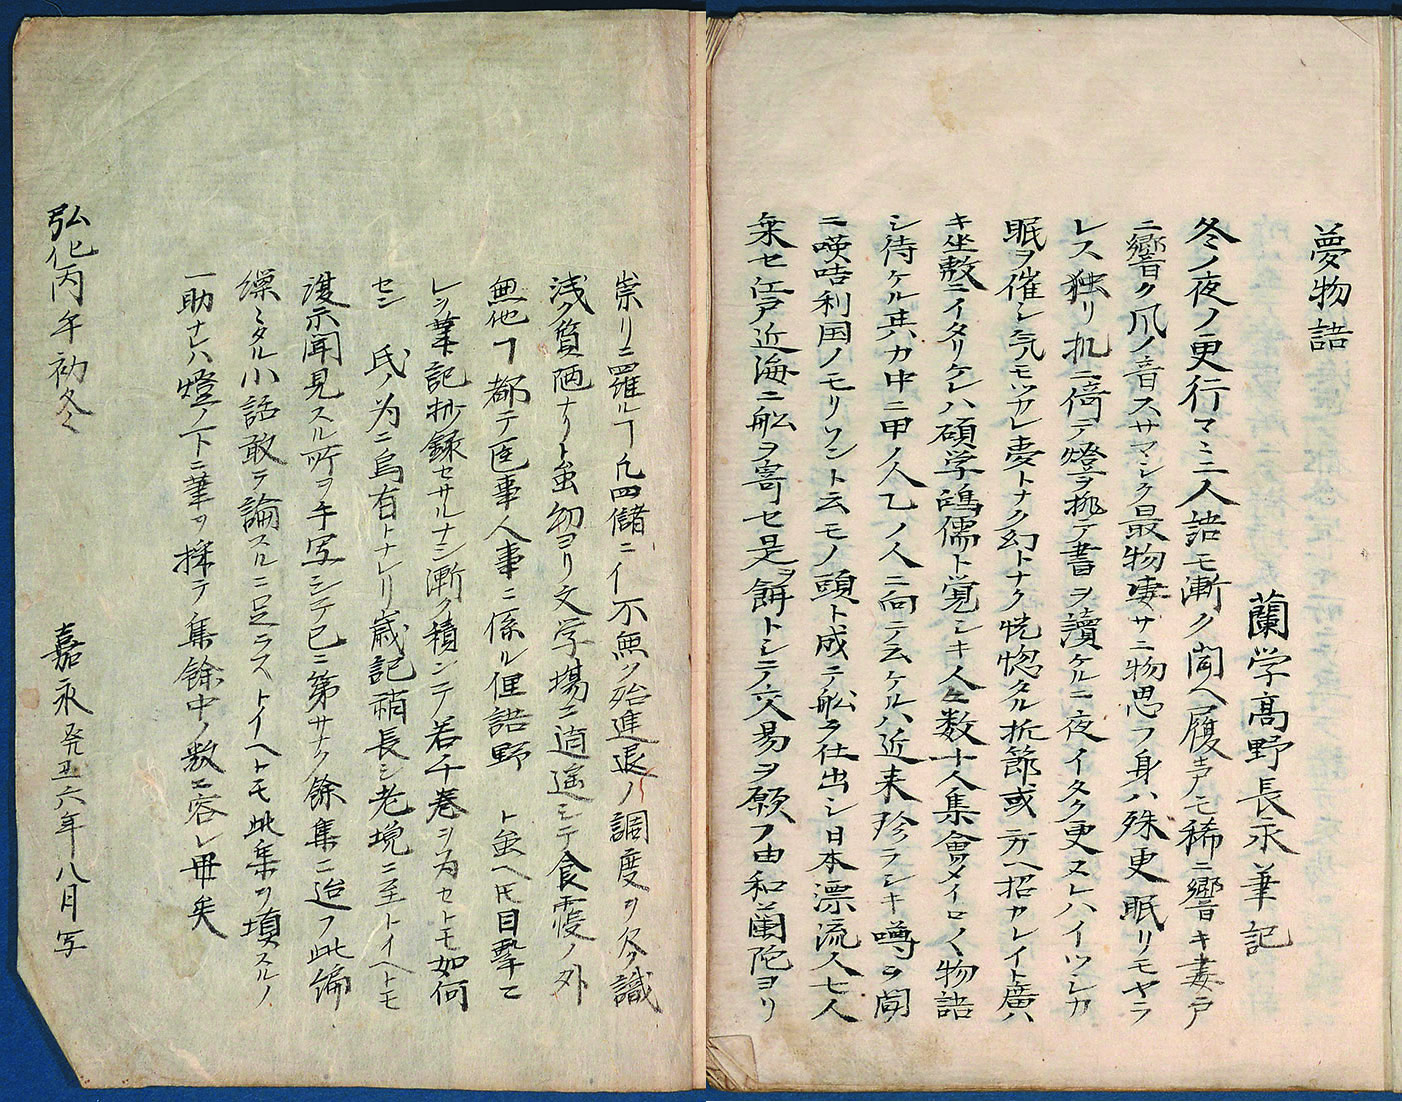 夢物語
蘭学高野長永筆記
冬ノ夜ノ更行マヽニ人語モ漸ク聞ヘ履声モ稀ニ響キ妻戸
ニ響ク爪ノ音スサマシク最物凄サニ物思フ身ハ殊更眠リモヤラ
レス独リ机ニ倚テ燈ヲ挑テ書ヲ讀ケルニ夜イタク更ヌレハイツシカ
眠ヲ催シ気モツカレ夢トナク幻トナク恍惚タル折節或方ヘ招カレイト廣ハ
キ坐敷ニイタリケレハ碩学鴻儒ト覚シキ人々数十人集會メイロ〳〵物語
シ待ケル其カ中ニ甲ノ人乙ノ人ニ向テ云ケルハ近来珍ラシキ噂ヲ聞
ニ暎咭利国ノモリソント云モノ頭ト成テ船ヲ仕出シ日本漂流人七人
乗セ江戸近海ニ船ヲ寄セ是ヲ餅トシテ交易ヲ願フ由和蘭陀ヨリ
崇リニ羅ルヿ凡四儲ニイ不無ツ殆進退ノ調度ヲ欠ク識
浅ク質陋ナリト虽幼ヨリ文学場ニ逍遥シテ食寝ノ外
無他ヿ都テ医事人事ニ係ル俚諺野 ト虽ヘ氏目撃て
レヲ筆記抄録セサルナシ漸ク積ンテ若千巻ヲ為セトモ如何
セン 氏ノ为ニ烏有トナレリ歳記稍長シ老境ニ至トイヘトモ
復示聞見スル所ヲ手写シテ已ニ第サク餘集ニ迨フ此編
ミタル小話敢テ論スルニ足ラストイヘトモ此集ヲ塡スルノ
一助ナレハ燈ノ下ニ筆ヲ採テ集餘中ノ数ニ容レ毋矣
弘化丙午初冬
嘉永 六年八月写